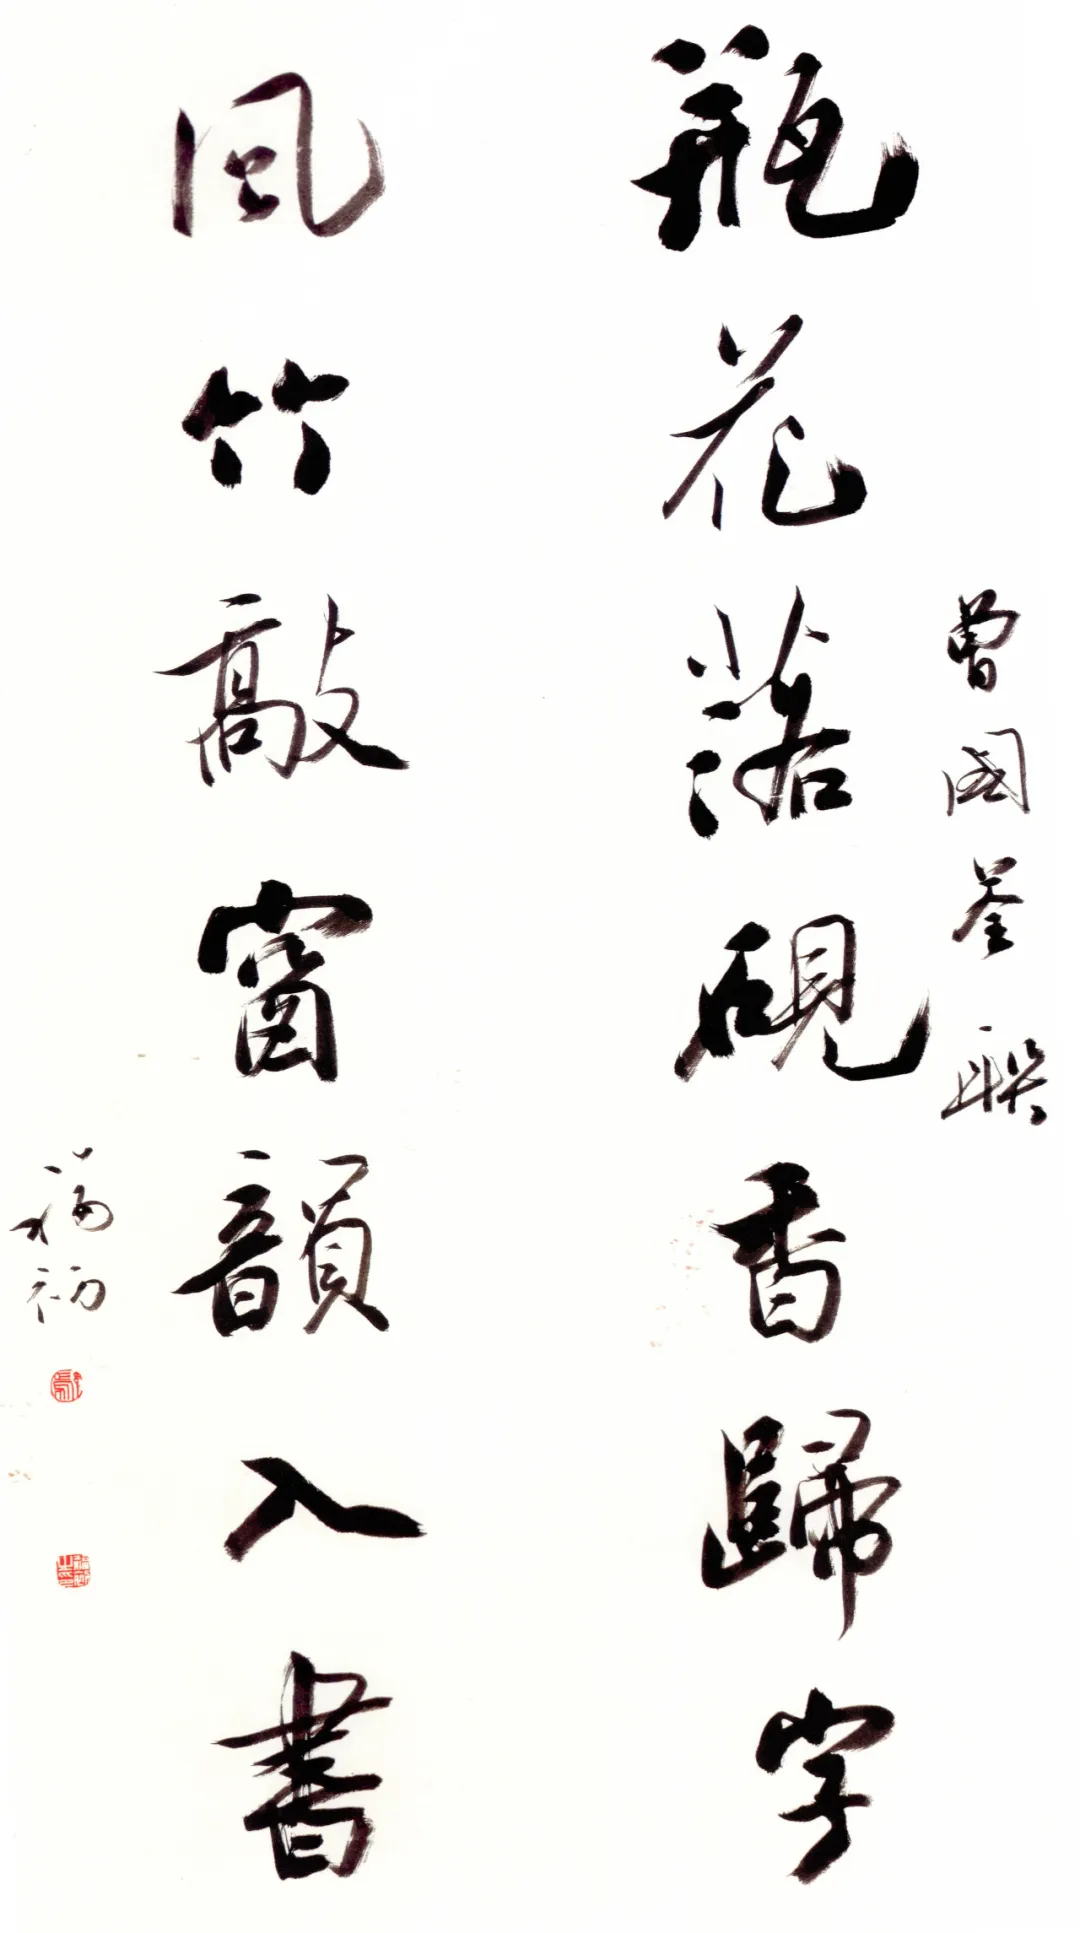 曾國荃聯
瓶花落硯香歸字
風竹敲窗韻入書
福初